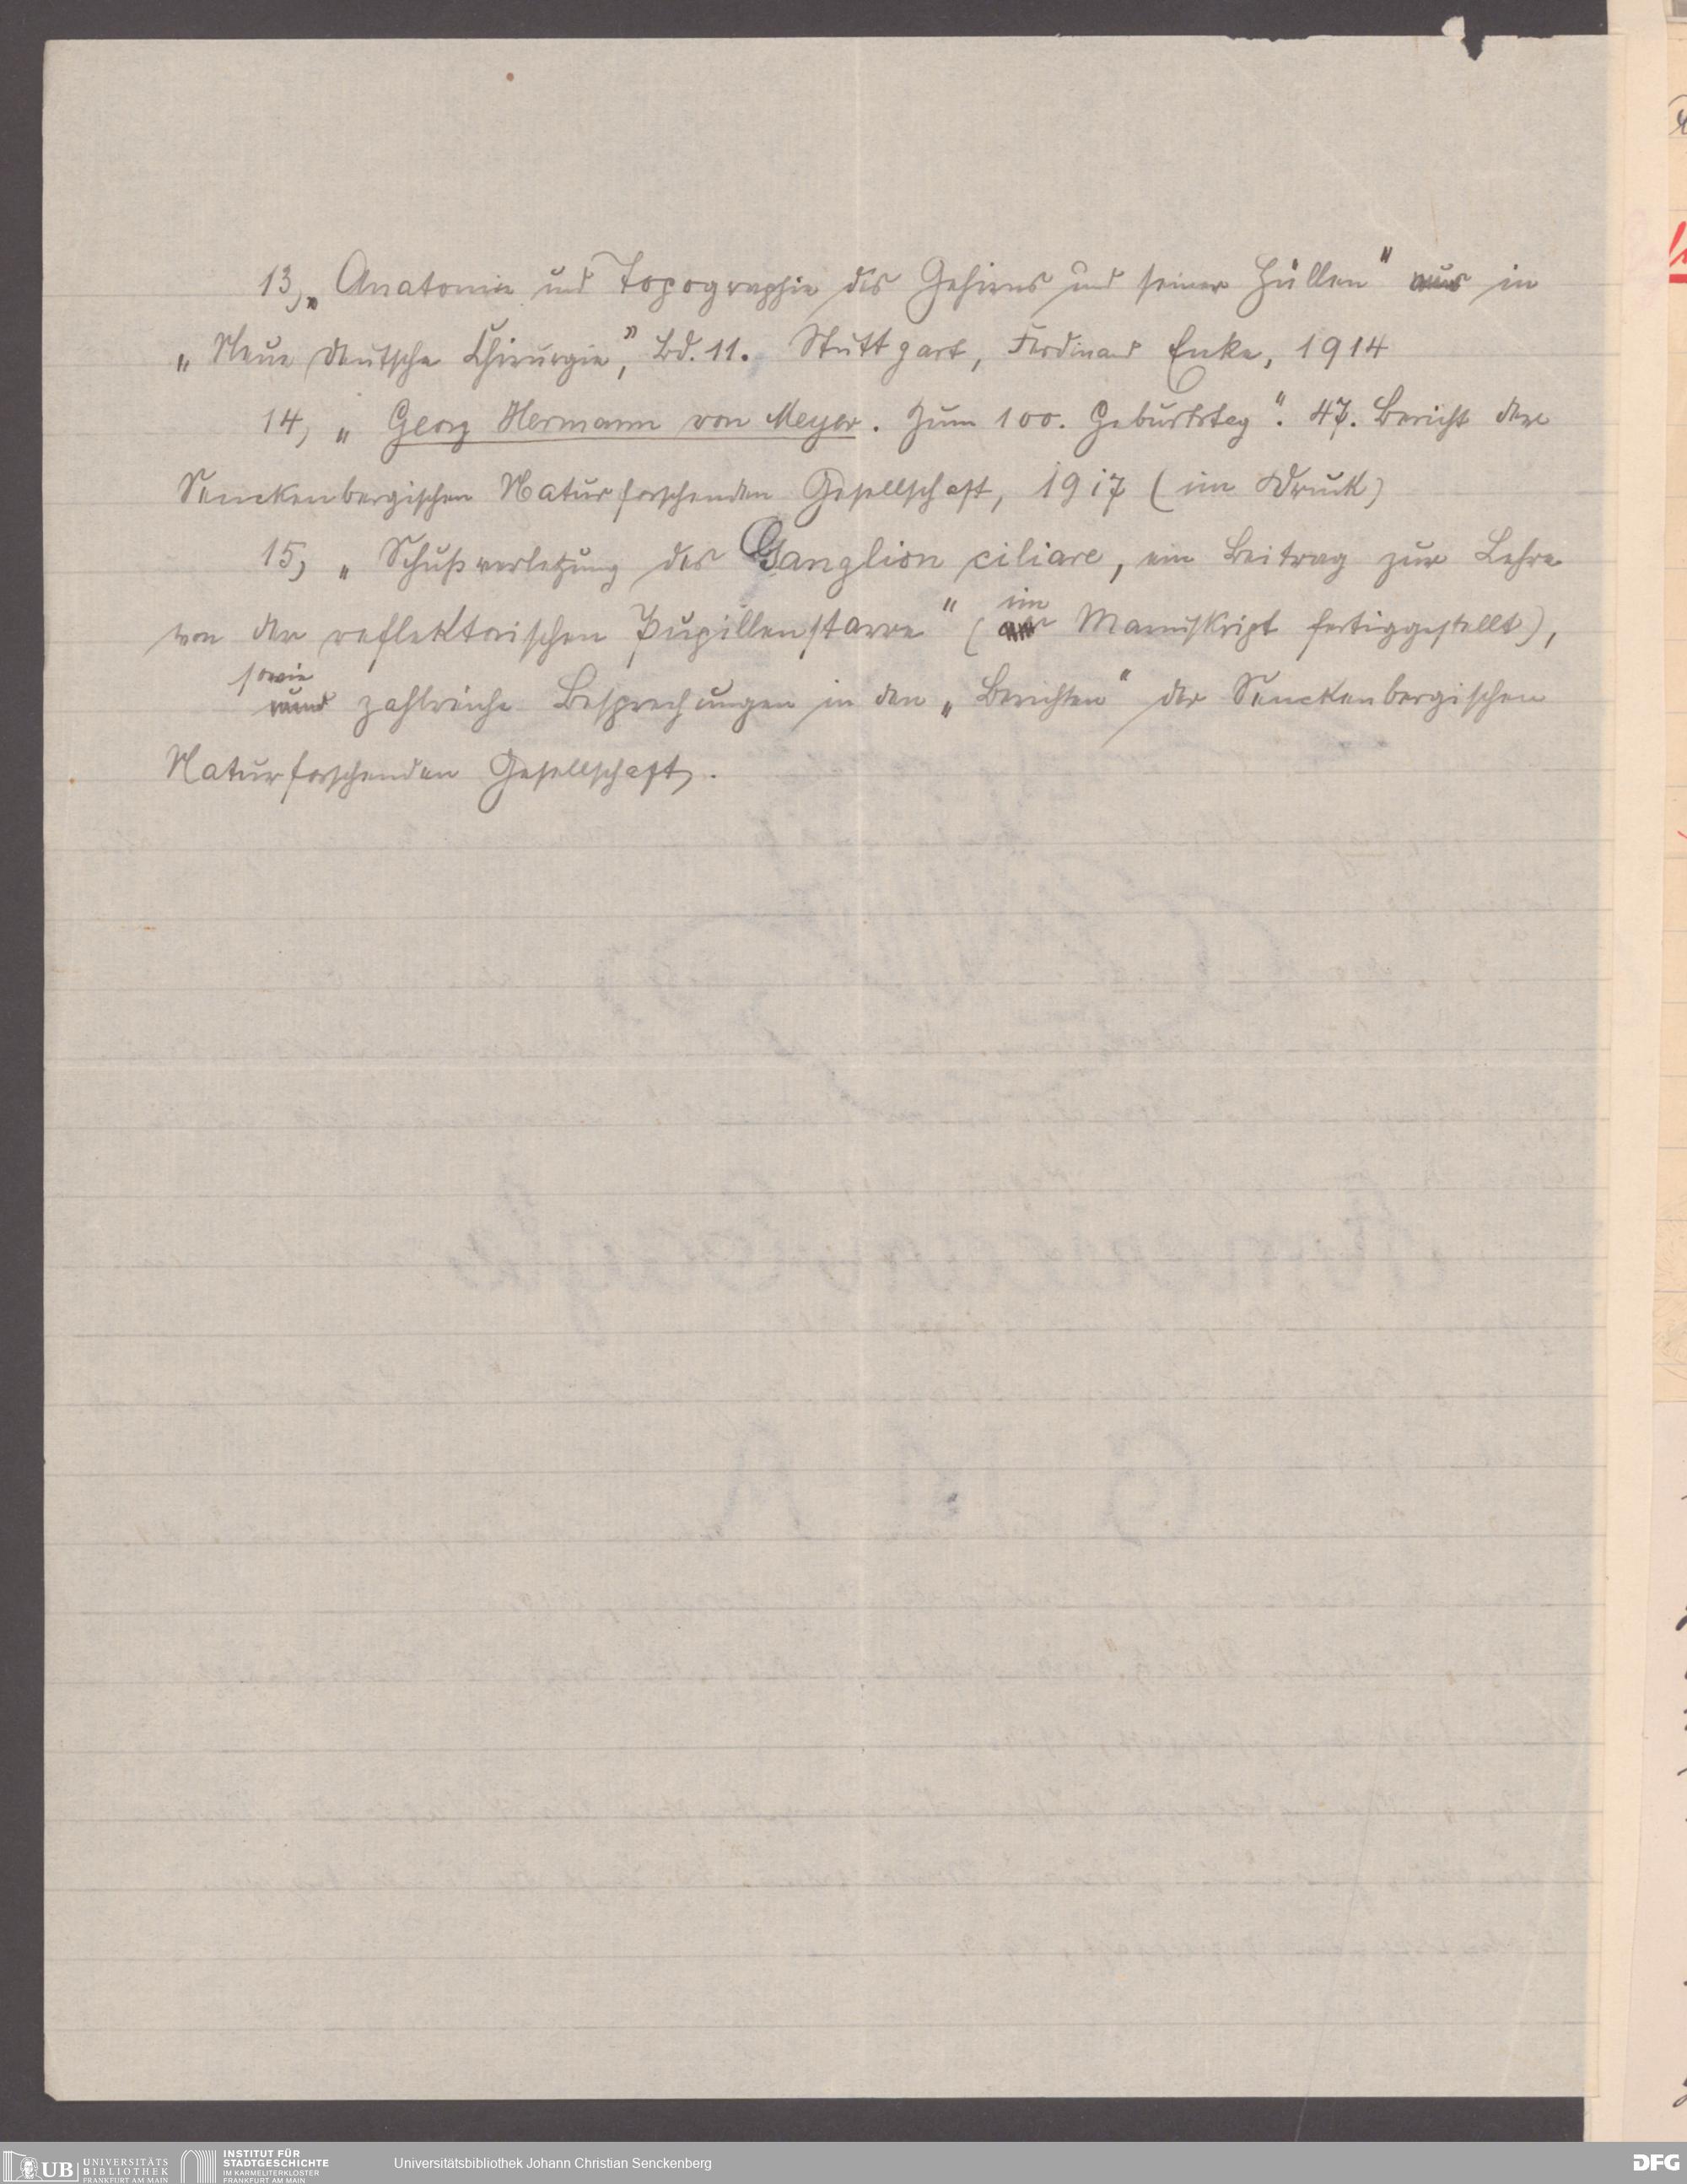 13, „Anatomie und Topographie des Gehirns und seiner Hüllen" aus in
„Neue deutsche Chirurgie", Bd. 11. Stuttgart, Ferdinand Enke, 1914
14, „Georg Hermann von Meyer. Zum 100. Geburtstag". 47. Bericht der
Senckenbergischen Naturforschenden Gesellschaft, 1917 (im Druck)
15, „Schußverletzung des Ganglion ciliare, ein Beitrag zur Lehre
im
von der reflektorischen Pupillenstarre" ( Manuskript fertiggestellt),
sowie
und zahlreiche Besprechungen in den „Berichten" der Senckenbergischen
Naturforschenden Gesellschaft.
UB UNIVERSITÄTS BIBLIOTHEK FRANKFURT AM MAIN
INSTITUT FÜR STADTGESCHICHTE IM KARMELITERKLOSTER FRANKFURT AM MAIN
Universitätsbibliothek Johann Christian Senckenberg
DFG